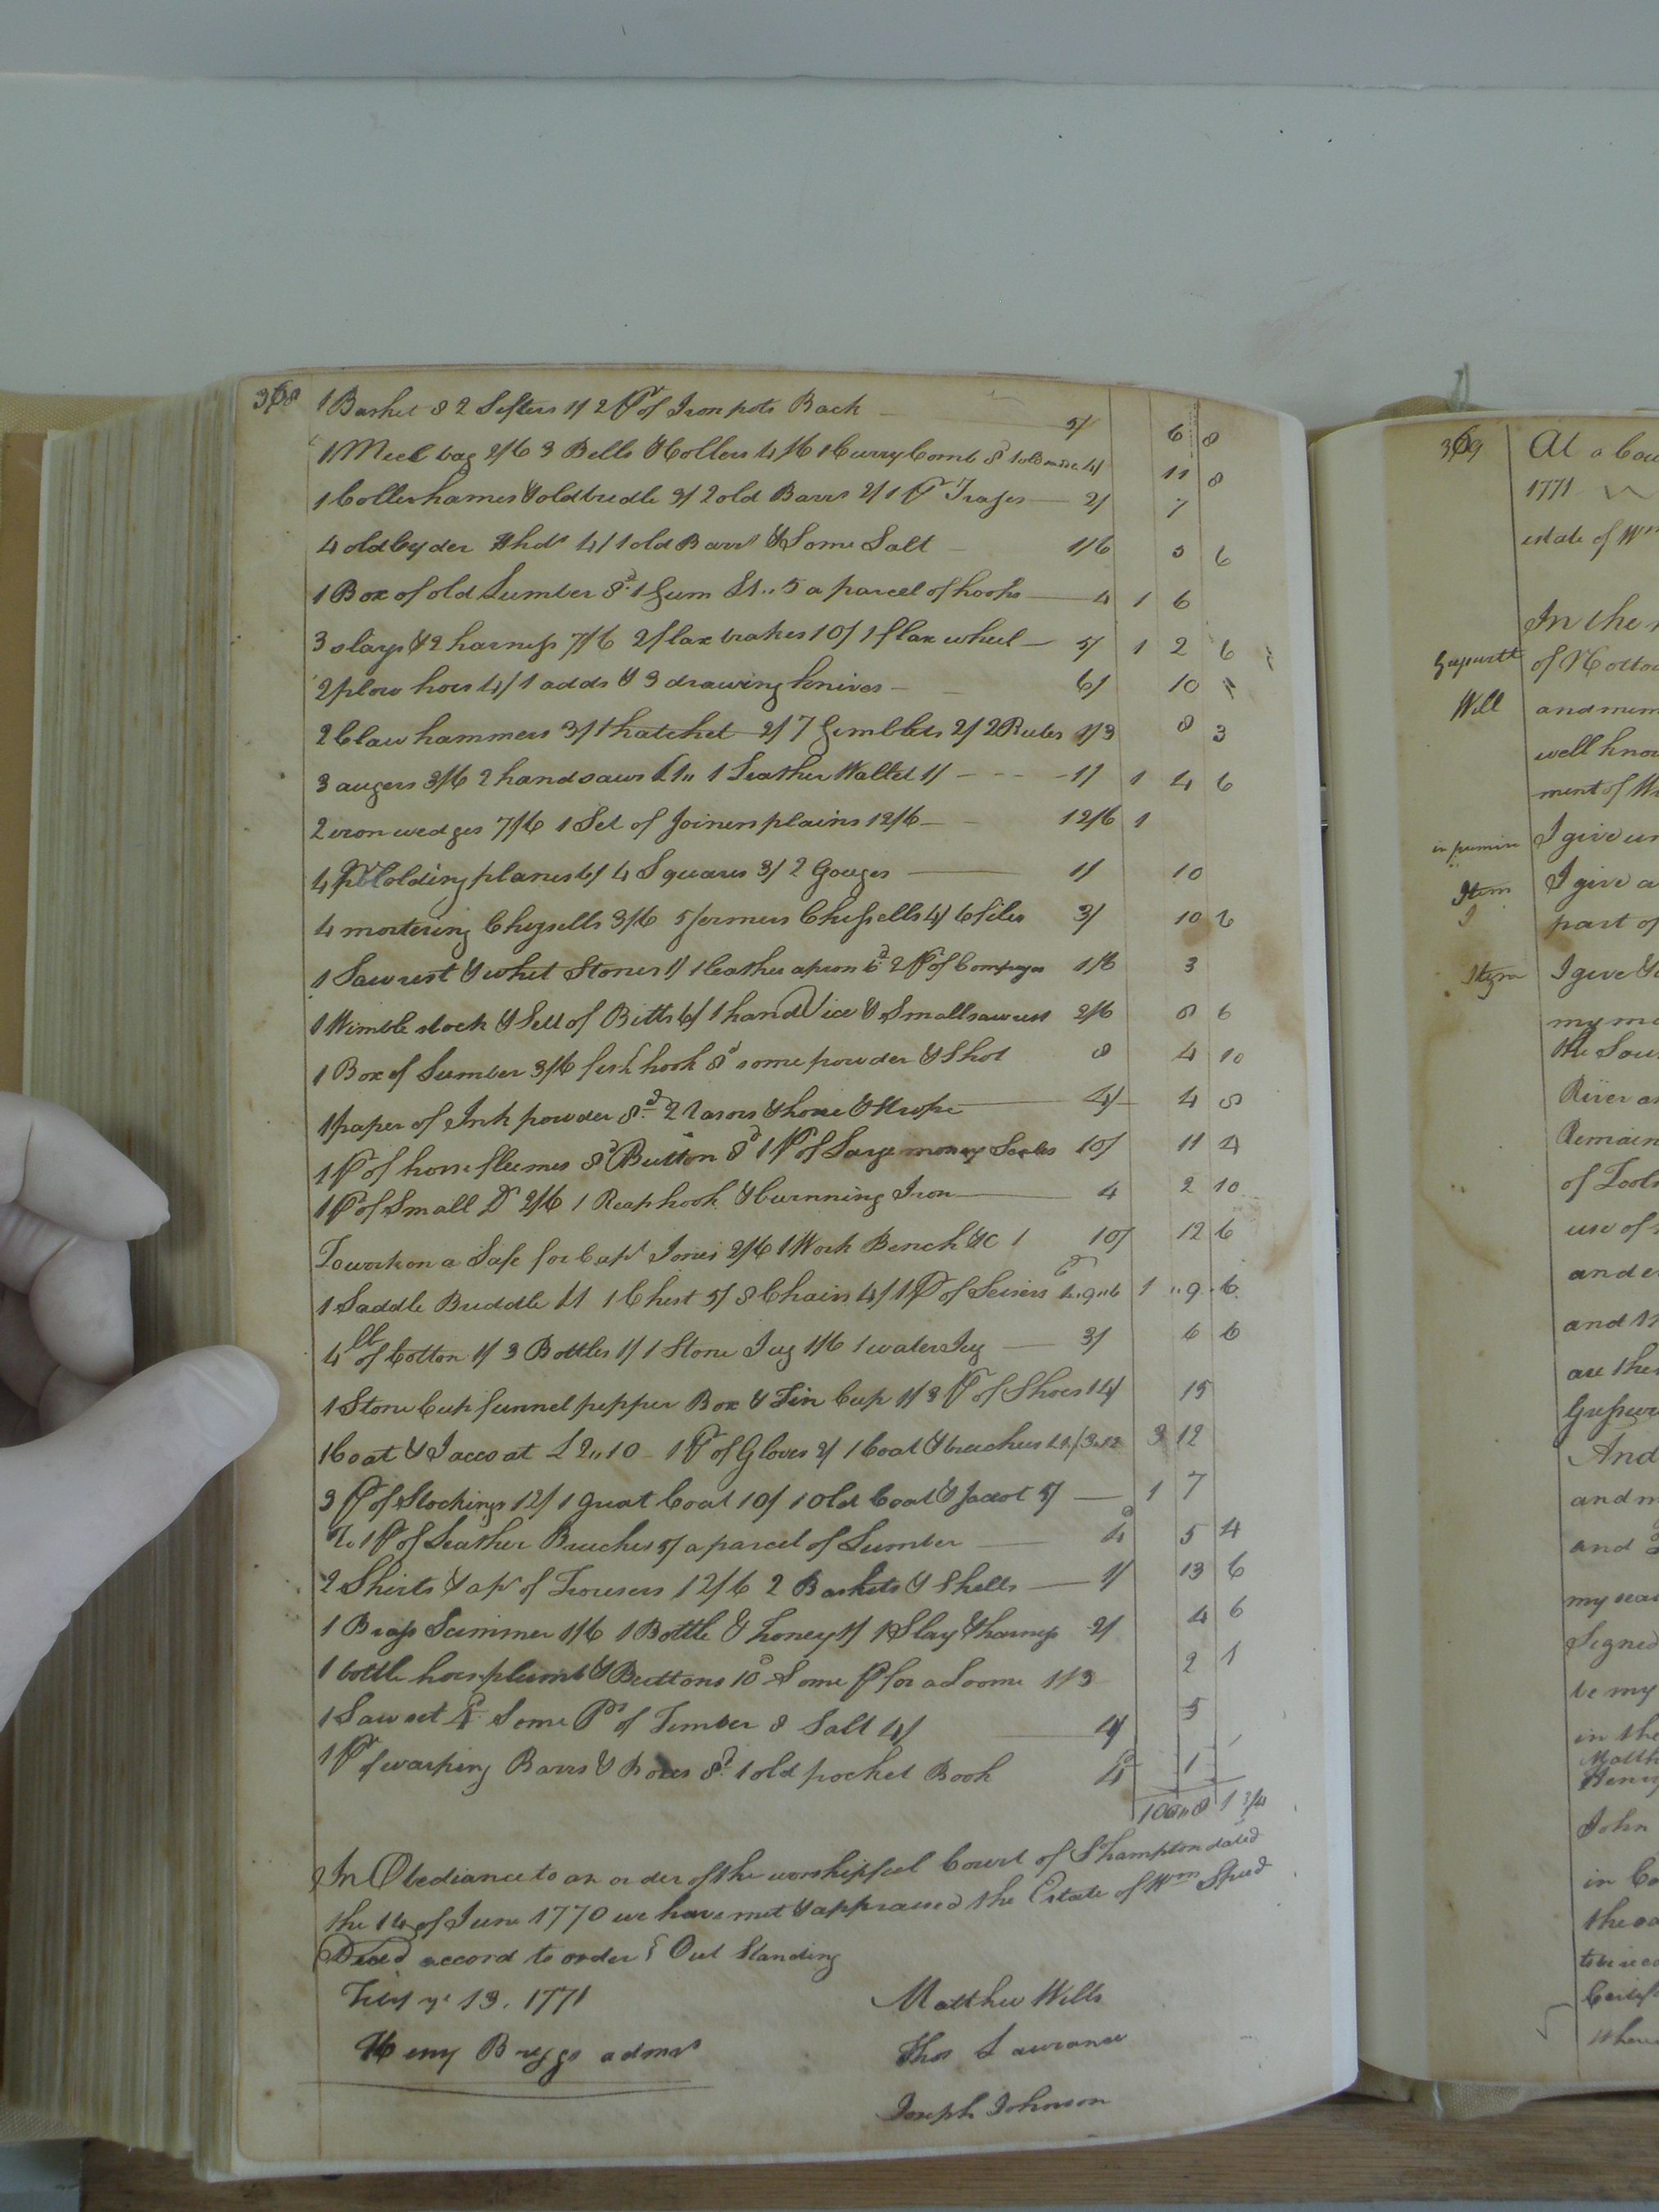 368
1 Basket 8 2 Sifters 1/ 2 Pr of Iron pots Rack 5/ 6 8
1 Meel bag 2/6 3 Bells & Collers 4/6 1 Curry Comb 8 1 old 4/ 11 8
1 Coller hames & old bridle 3/ 2 old Barrs 2/ 1 Pr Trases 2/ 7
4 old Cyder Hhds 4/ 1 old Barrl & Some Salt 1/6 5 6
1 Box of old Lumber 8d 1 Gum £1,,5 a parcel of hoops 4 1 6
3 slays & 2 harness 7/6 2 flax brakes 10/ 1 flax wheel 5/ 1 2 6
2 plow hoes 4/ 1 adds & 3 drawing knives 6/ 10
2 Claw hammers 3/ 1 hatchet 2/ 7 Gimblets 2/ 2 Rules 1/3 8 3
3 augers 3/6 2 handsaws £1,, 1 Leather Wallet 1/ 1/ 1 4 6
2 iron wedges 7/6 1 Set of Joiners plains 12/6 12/6 1
4 pr Molding planes 6/ 4 Squares 3/ 2 Gouges 1/ 10
4 mortering Cheysells 3/6 5 formers Chessells 4/ 6 files 3/ 10 6
1 Saw rest & whet Stones 1/ 1 leather apron 6d 2 Pr of Compases 1/6 3
1 Wimble stock & Sett of Bitts 6/ 1 hand Vice & Small saw rest 2/6 8 6
1 Box of Lumber 3/6 fish hook 8d some powder & Shot 8 4 10
1 paper of Ink powder 8d 2 rasors & hone & Strope 4/ 4 8
1 Pr of horse fleemes 8d Button 8d 1 Pr of Large money Scales 10/ 11 4
1 Pr of Small Do 2/6 1 Reap hook & burnning Iron 4 2 10
To work on a Safe for Capt Jones 2/6 1 Work Bench &C 1 10/ 12 6
1 Saddle Briddle £1 1 Chest 5/ 8 Chairs 4/ 1 Pr of Scisers 6d 1,,9,,6 1 ,,9,,6
4 lb of Cotton 1/ 3 Bottles 1/ 1 Stone Jug 1/6 1 water Jug 3/ 6 6
1 Stone Cup funnel pepper Box & Tin Cup 1/ 3 Pr of Shoes 14/ 15
1 Coat & Jaccoat £2,,10 1 Pr of Gloves 2/ 1 Coat & breeches £1/ 3,,12 3 12
3 Pr of Stockings 12/ 1 great Coat 10/ 1 Old Coat & Jacot 5/ 1 7
To 1 Pr of Leather Breeches 5/ a parcel of Lumber 4d 5 4
2 Shirts & a pr of Trousers 12/6 2 Baskets & Shells 1/ 13 6
1 Brass Scimmer 1/6 1 Bottle & honey 1/ 1 Slay & harness 2/ 4 6
1 bottle hors plumb & Buttons 10d Some P for a Loome 1/3 2 1
1 Saw set 4d Some Ps of Timber 8 Salt 4/ 4/ 5
1 Pr of warping Barrs & Boxes 8d 1 old pocket Book 4d 1
106,,8 1 3/4
In Obediance to an order of the worshipfull Court of S hampton dated
the 14 of June 1770 we have met & appraised the Estate of Wm Speed
Deced accord to order & Out Standing
Feby ye 13. 1771
Matthew Wills
Heny Briggs admr
Thos Lawrance
Joseph Johnson
369
At a Cou
1771
estate of Wm
In the
of Nottow
Will
and mem
well know
ment of
I give un
Item
I give a
part of
Item
I give &
my mo
the Sou
River a
Remain
of Tools
use of
and e
and th
are the
And
and m
and
my sea
Signed
be my
in the
Matth
Henry
John
in Co
the sa
Certif